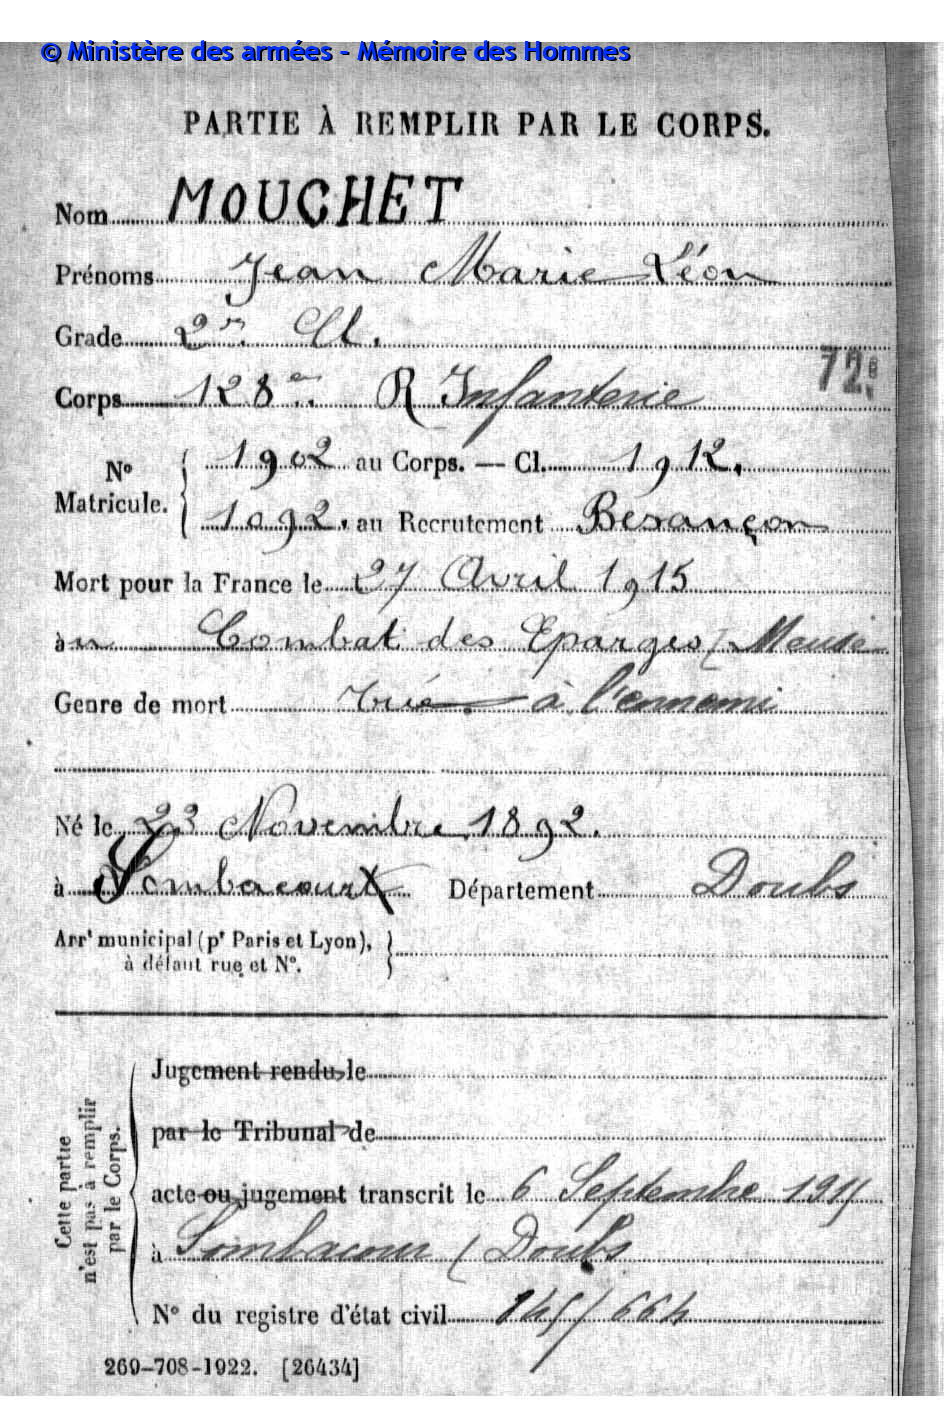 © Ministère des armées - Mémoire des Hommes
PARTIE À REMPLIR PAR LE CORPS.
Nom MOUCHET
Prénoms Jean Marie Léon
Grade 2e Cl.
72e
Corps 128e R Infanterie
No Matricule. 1902 au Corps. — Cl. 1912.
1092. au Recrutement Besançon
Mort pour la France le 27 Avril 1915
àu Combat des Eparges (Meuse
Genre de mort tué à l'ennemi
Né le 23 Novembre 1892.
à Sombacourt Département Doubs
Arrt municipal (pr Paris et Lyon),
à défaut rue et No.
Cette partie n'est pas à remplir par le Corps.
Jugement rendu le
par le Tribunal de
acte ou jugement transcrit le 6 Septembre
à Sombacour (Doubs
No du registre d'état civil 145/664
269-708-1922. [26434]